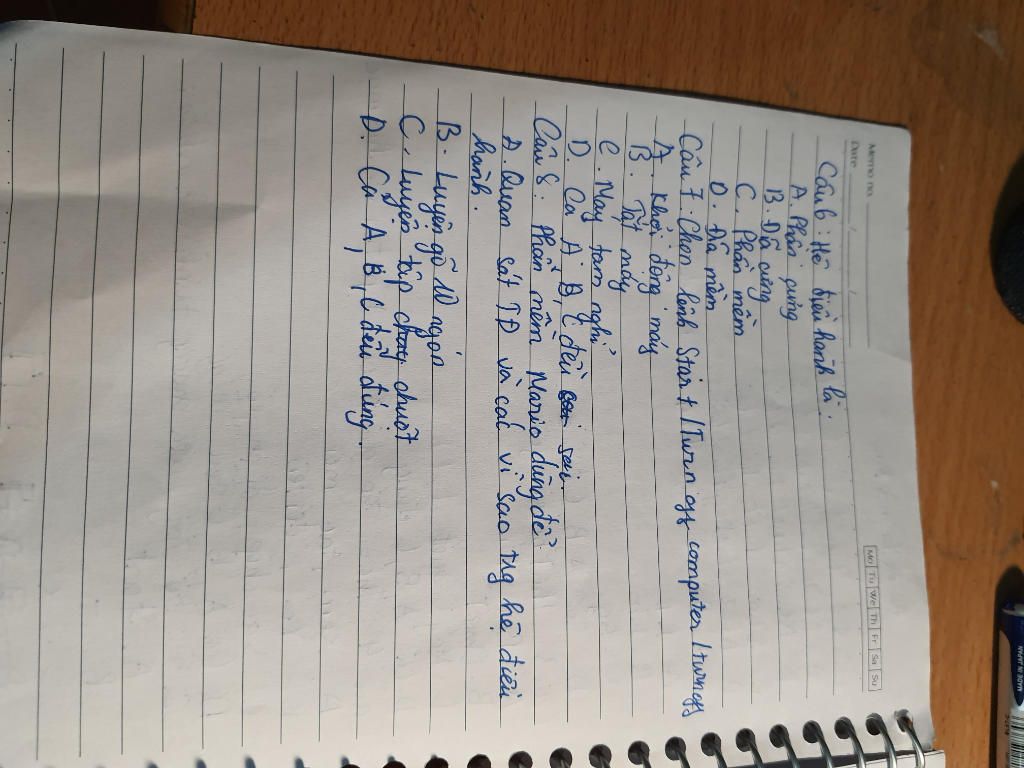 Memo no.
Date / /
Mo Tu We Th Fr Sa Su
Câu 6: Hệ điều hành là:
A. Phần cứng
B. Đĩa cứng
C. Phần mềm
D. Đĩa mềm
Câu 7. Chọn lệnh Start / Turon off computer / turnoff
A. Khởi động máy
B. Tắt máy
C. Máy tạm nghỉ
D. Cả A, B, C đều sai.
Câu 8: Phần mềm Mario dùng để
A. Quan sát TĐ và các vì sao trg hệ điều
hành.
B. Luyện gõ 10 ngón
C. Luyện tập chuột
D. Cả A, B, C đều đúng.
MADE IN JAPAN